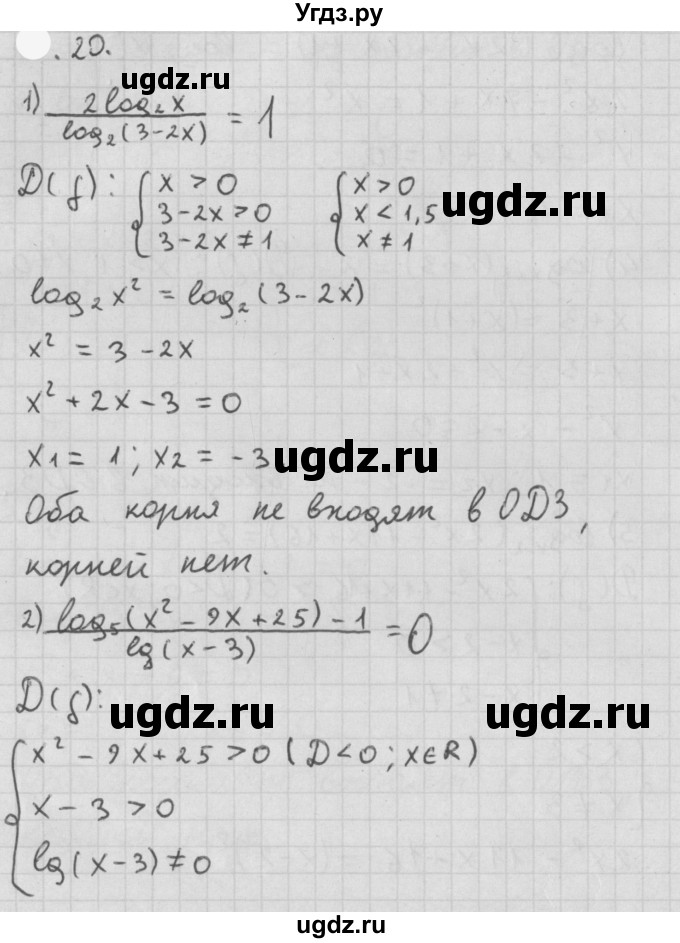 Угдз.ру
.20.
ugdz.ru
1) 2log₂x / log₂(3-2x) = 1
D(f): { x > 0 { x > 0
3-2x > 0 x < 1,5
3-2x ≠ 1 x ≠ 1
ugdz.ru
log₂x² = log₂(3-2x)
x² = 3-2x
x² + 2x - 3 = 0
x1 = 1; x2 = -3
ugdz.ru
Оба корня не входят в ОДЗ,
корней нет.
2) log₅(x² - 9x + 25) - 1 / lg(x-3) = 0
D(f):
ugdz.ru
ugdz.ru
{ x² - 9x + 25 > 0 (D < 0; x∈R)
x - 3 > 0
lg(x-3) ≠ 0
ugdz.ru